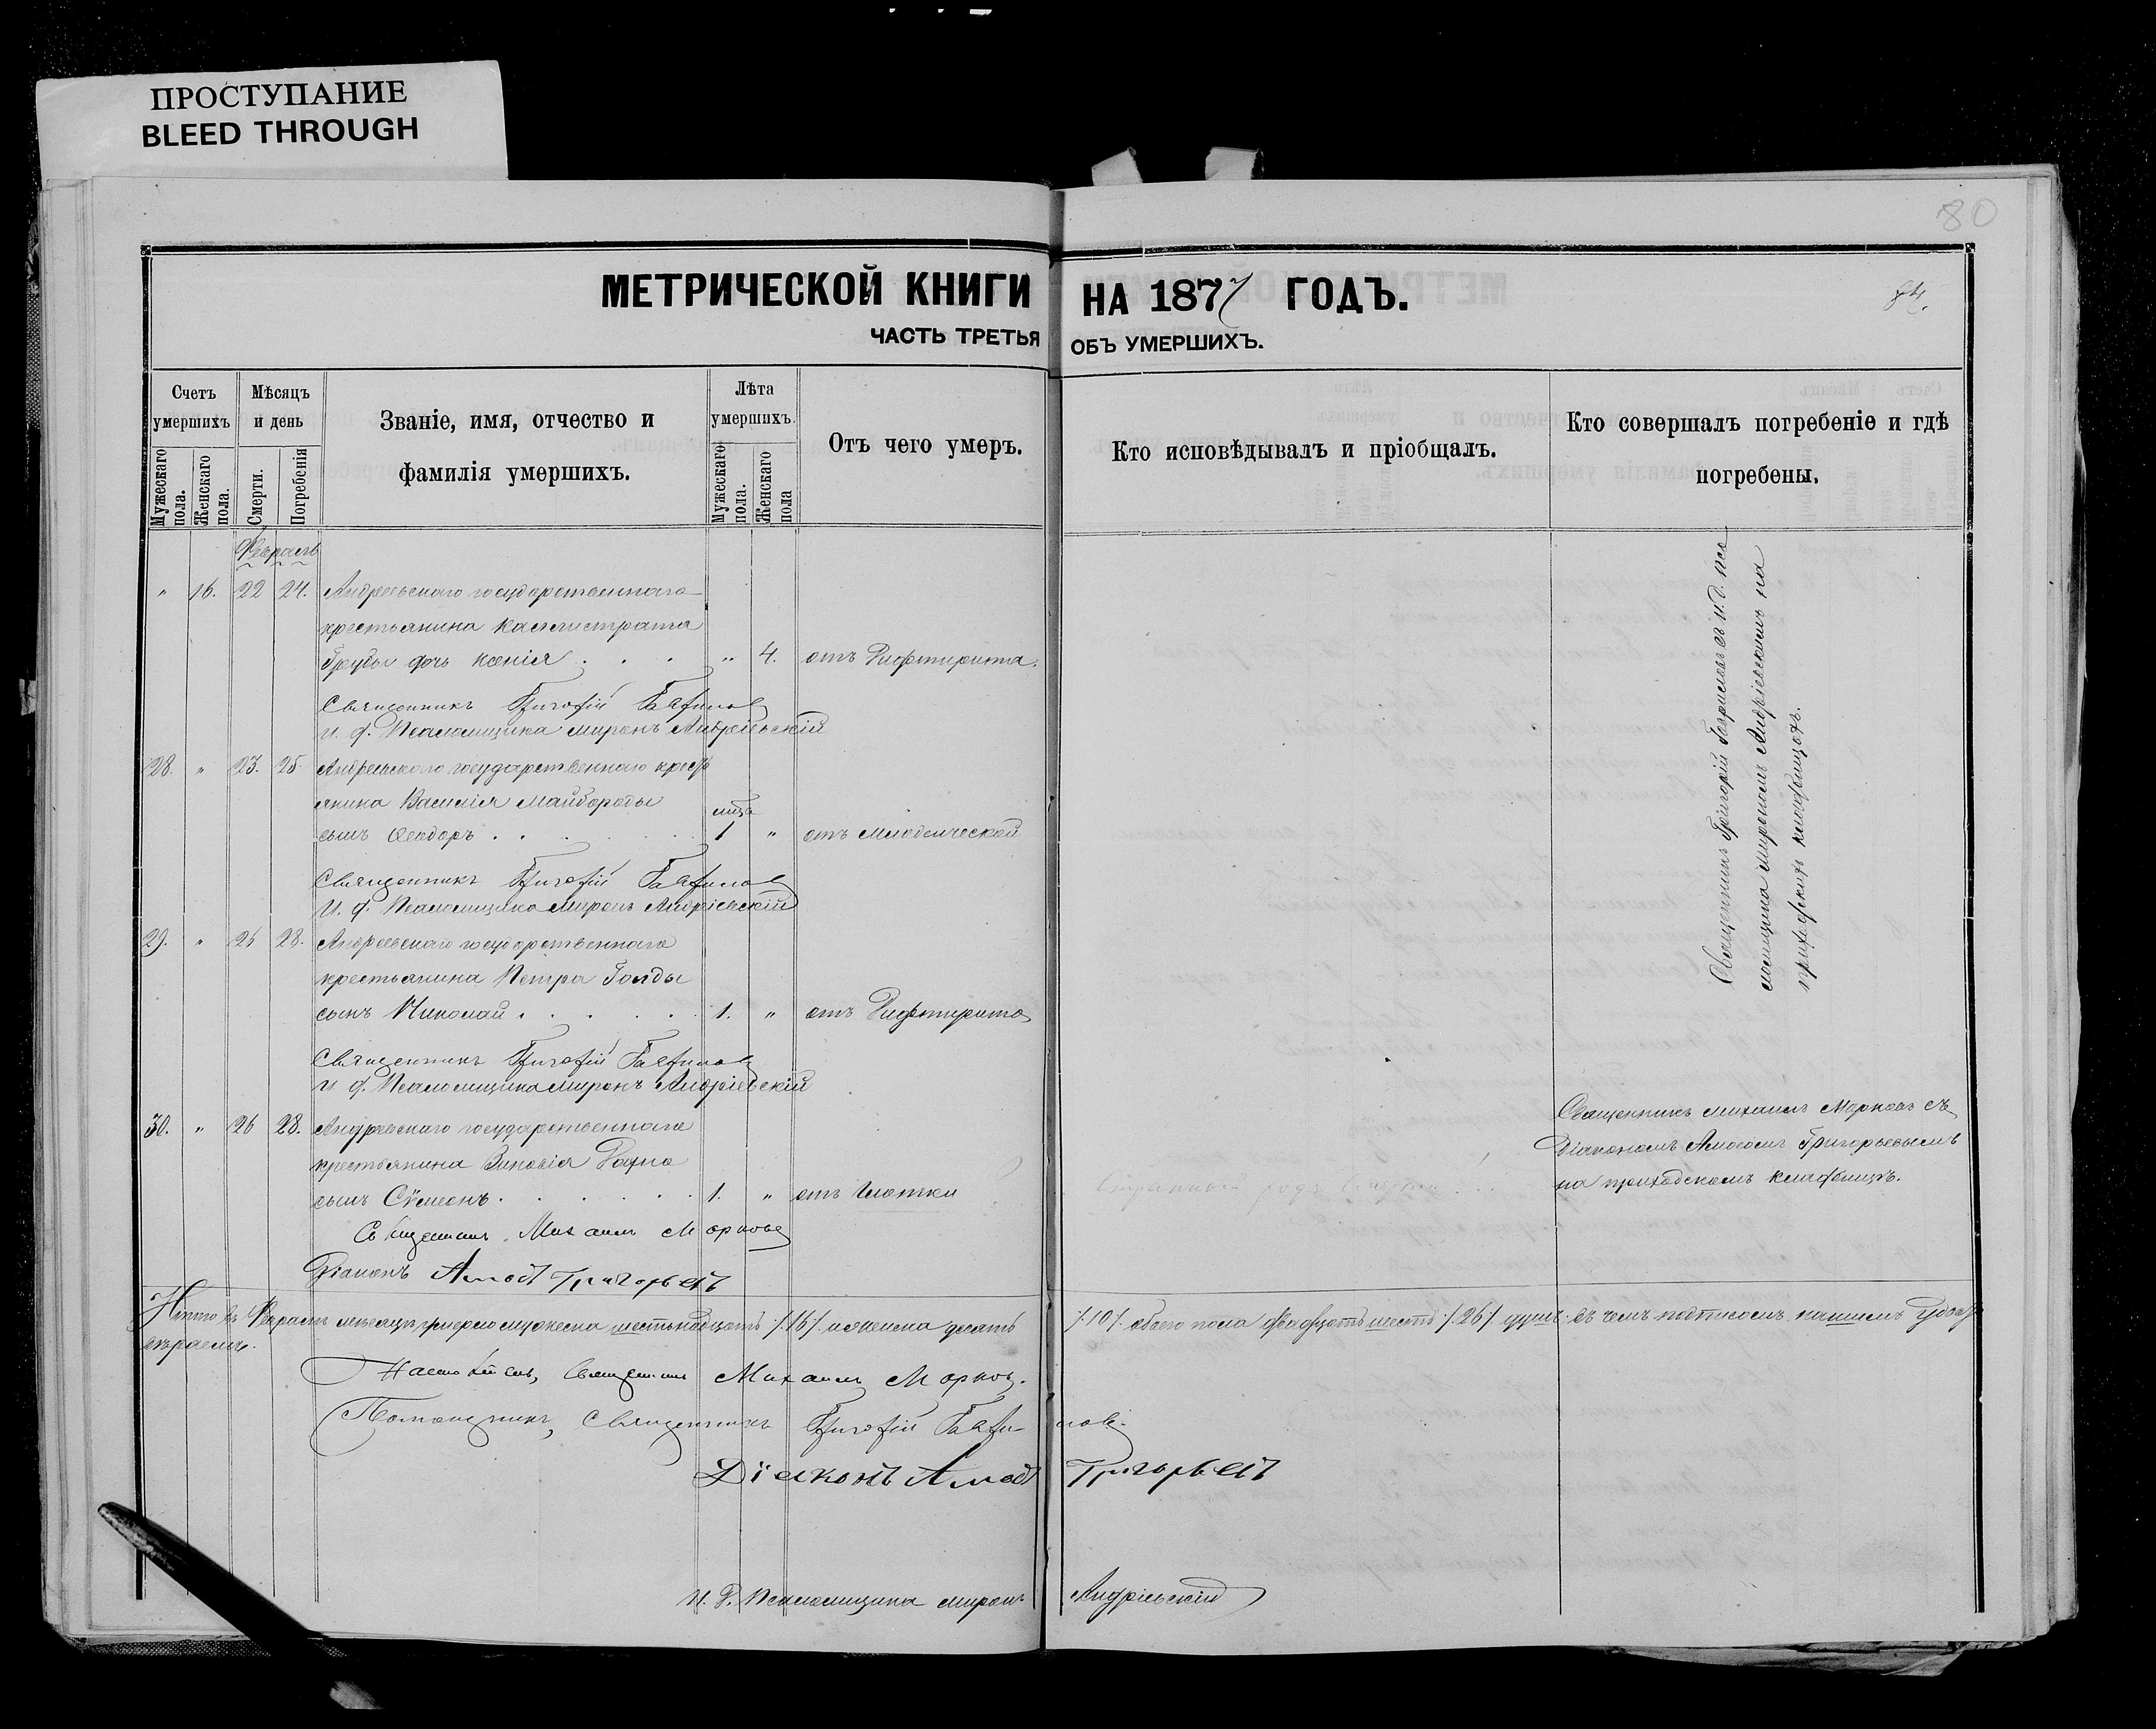 ПРОСТУПАНИЕ
BLEED THROUGH
80
МЕТРИЧЕСКОЙ КНИГИ НА 1877 ГОДЪ.
84.
ЧАСТЬ ТРЕТЬЯ ОБЪ УМЕРШИХЪ.
Счетъ умершихъ
Мужескаго пола.
Женскаго пола.
Мѣсяцъ и день
Смерти.
Погребенія
Званіе, имя, отчество и
фамилія умершихъ.
Лѣта умершихъ.
Мужескаго пола.
Женскаго пола
Отъ чего умеръ.
Кто исповѣдывалъ и пріобщалъ.
Кто совершалъ погребеніе и гдѣ
погребены.
Февраль
" 16. 22 24. Андреевскаго государственнаго
крестьянина Каллистрата
Грубы дочь Ксенія . . . " 4. отъ Дифтирита.
Священникъ Григорій Гаврилов
И. д. Псаломщика Миронъ Андріевскій
28. " 23. 25. Андреевскаго государственнаго крест
янина Василія Майбороды
сынъ Ѳеодоръ . . . мца 1 " отъ Млоденческой
Священникъ Григорій Гаврилов
И. д. Псаломщика Миронъ Андріевскій
29. " 25 28. Андреевскаго государственнаго
крестьянина Петра Голды
сынъ Николай . . . . . 1. " отъ Дифтирита
Священникъ Григорій Гаврилов
И. д. Псаломщика Миронъ Андріевскій
Священникъ Григорій Гавриловъ съ и. д. пса
ломщика Мирономъ Андріевскимъ на
приходскомъ кладбищѣ.
30. " 26 28. Андреевскаго государственнаго
крестьянина Зиновія
сынъ Сѵмеонъ . . . . . . 1. " отъ Глотки
Священникъ Михаилъ Марковъ съ
Діакономъ Амосомъ Григорьевымъ
на приходскомъ кладбищѣ.
Священникъ Михаилъ Марковъ
Діаконъ Амосъ Григорьевъ
Итого въ Февралѣ мѣсяцѣ умерло мужеска шестьнадцать /.16/. и женска десять /.10/. обоего пола двадцать шесть /.26/. душъ; въ чемъ подписомъ нашимъ удосто
вѣряемъ.
Настоятель, Священникъ Михаилъ Марковъ.
Помощникъ, Священникъ Григорій Гаврилов.
Діаконъ Амосъ Григорьевъ
И. д. Псаломщика Миронъ Андріевскій